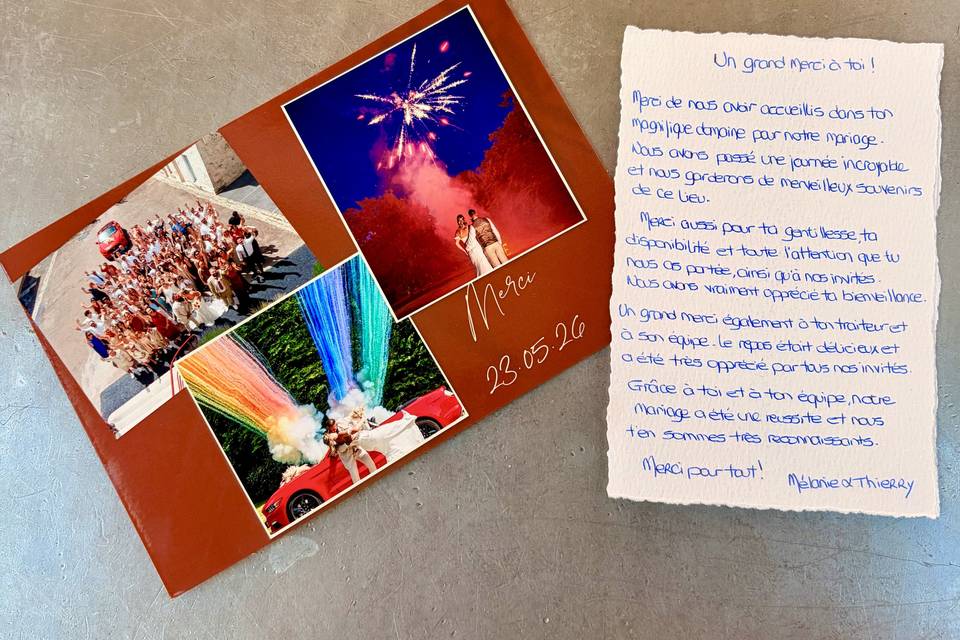 Merci
23.05.26
Un grand Merci à toi !
Merci de nous avoir accueillis dans ton
magnifique domaine pour notre mariage.
Nous avons passé une journée incroyable
et nous garderons de merveilleux souvenirs
de ce lieu.
Merci aussi pour ta gentillesse, ta
disponibilité et toute l'attention que tu
nous as portée, ainsi qu'à nos invités.
Nous avons vraiment apprécié ta bienveillance.
Un grand merci également à ton traiteur et
à son équipe. Le repas était délicieux et
a été très apprécié par tous nos invités.
Grâce à toi et à ton équipe, notre
mariage a été une réussite et nous
t'en sommes très reconnaissants.
Merci pour tout !
Mélanie & Thierry